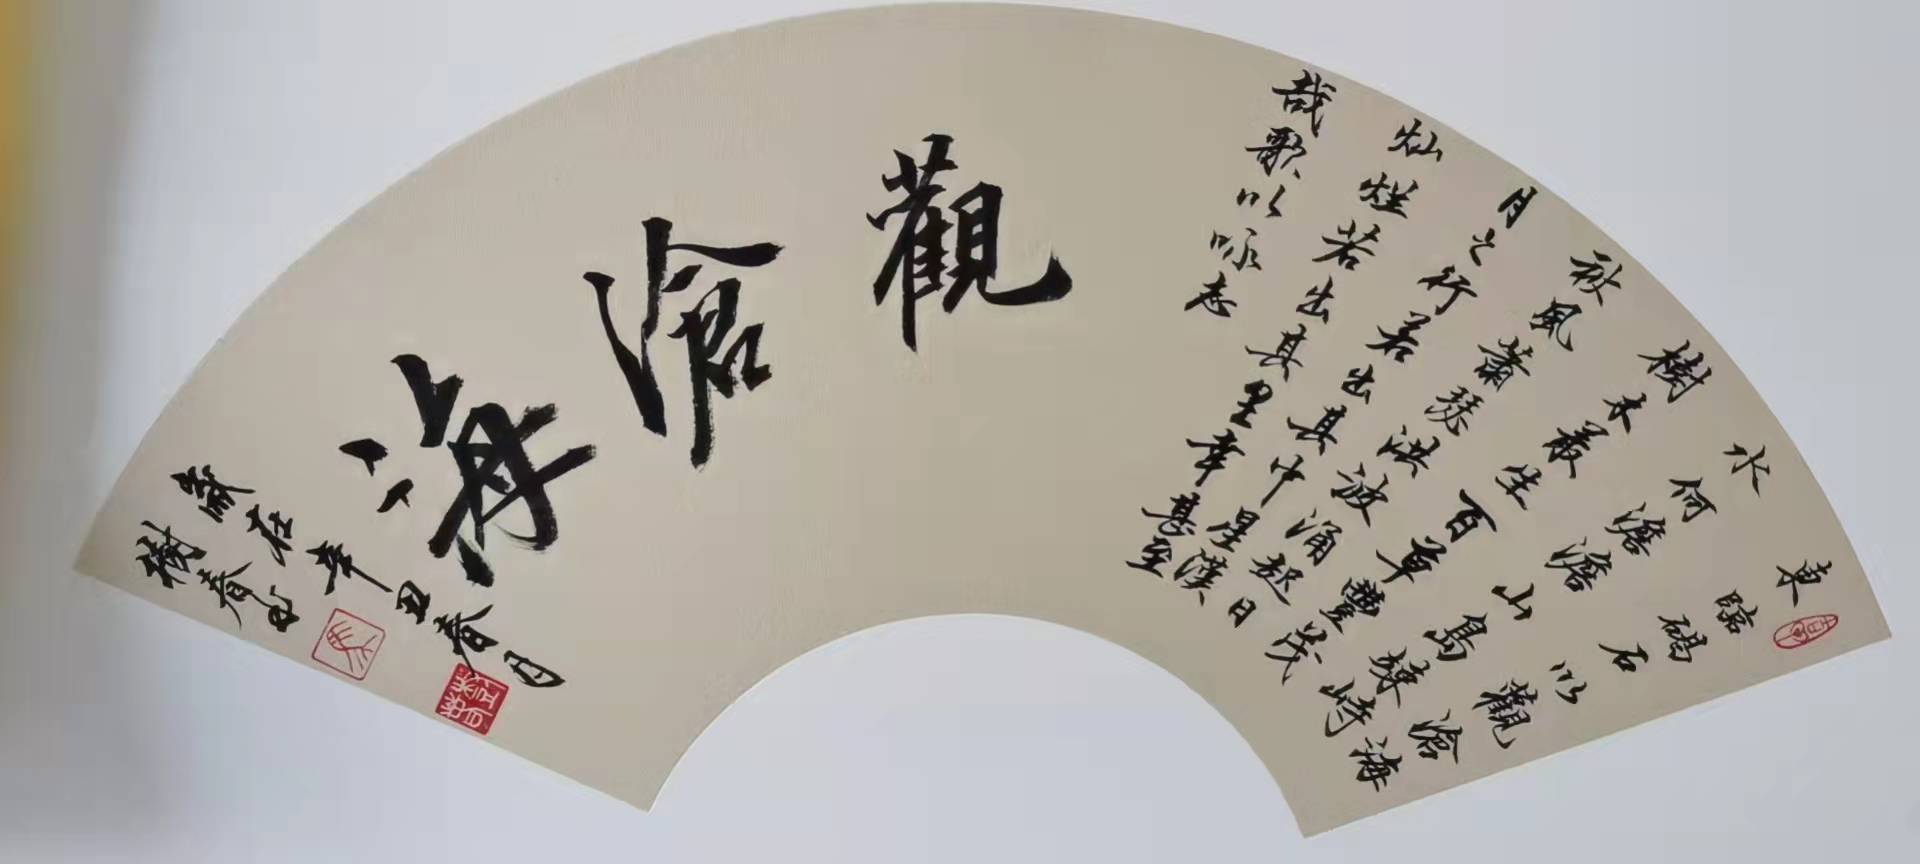 東臨碣石以觀滄海
水何澹澹山島竦峙
樹木叢生百草豐茂
秋風蕭瑟洪波涌起日
月之行若出其中星漢
灿烂若出其里幸甚至
哉歌以咏志
觀滄海
歲在辛丑春月
樹春書